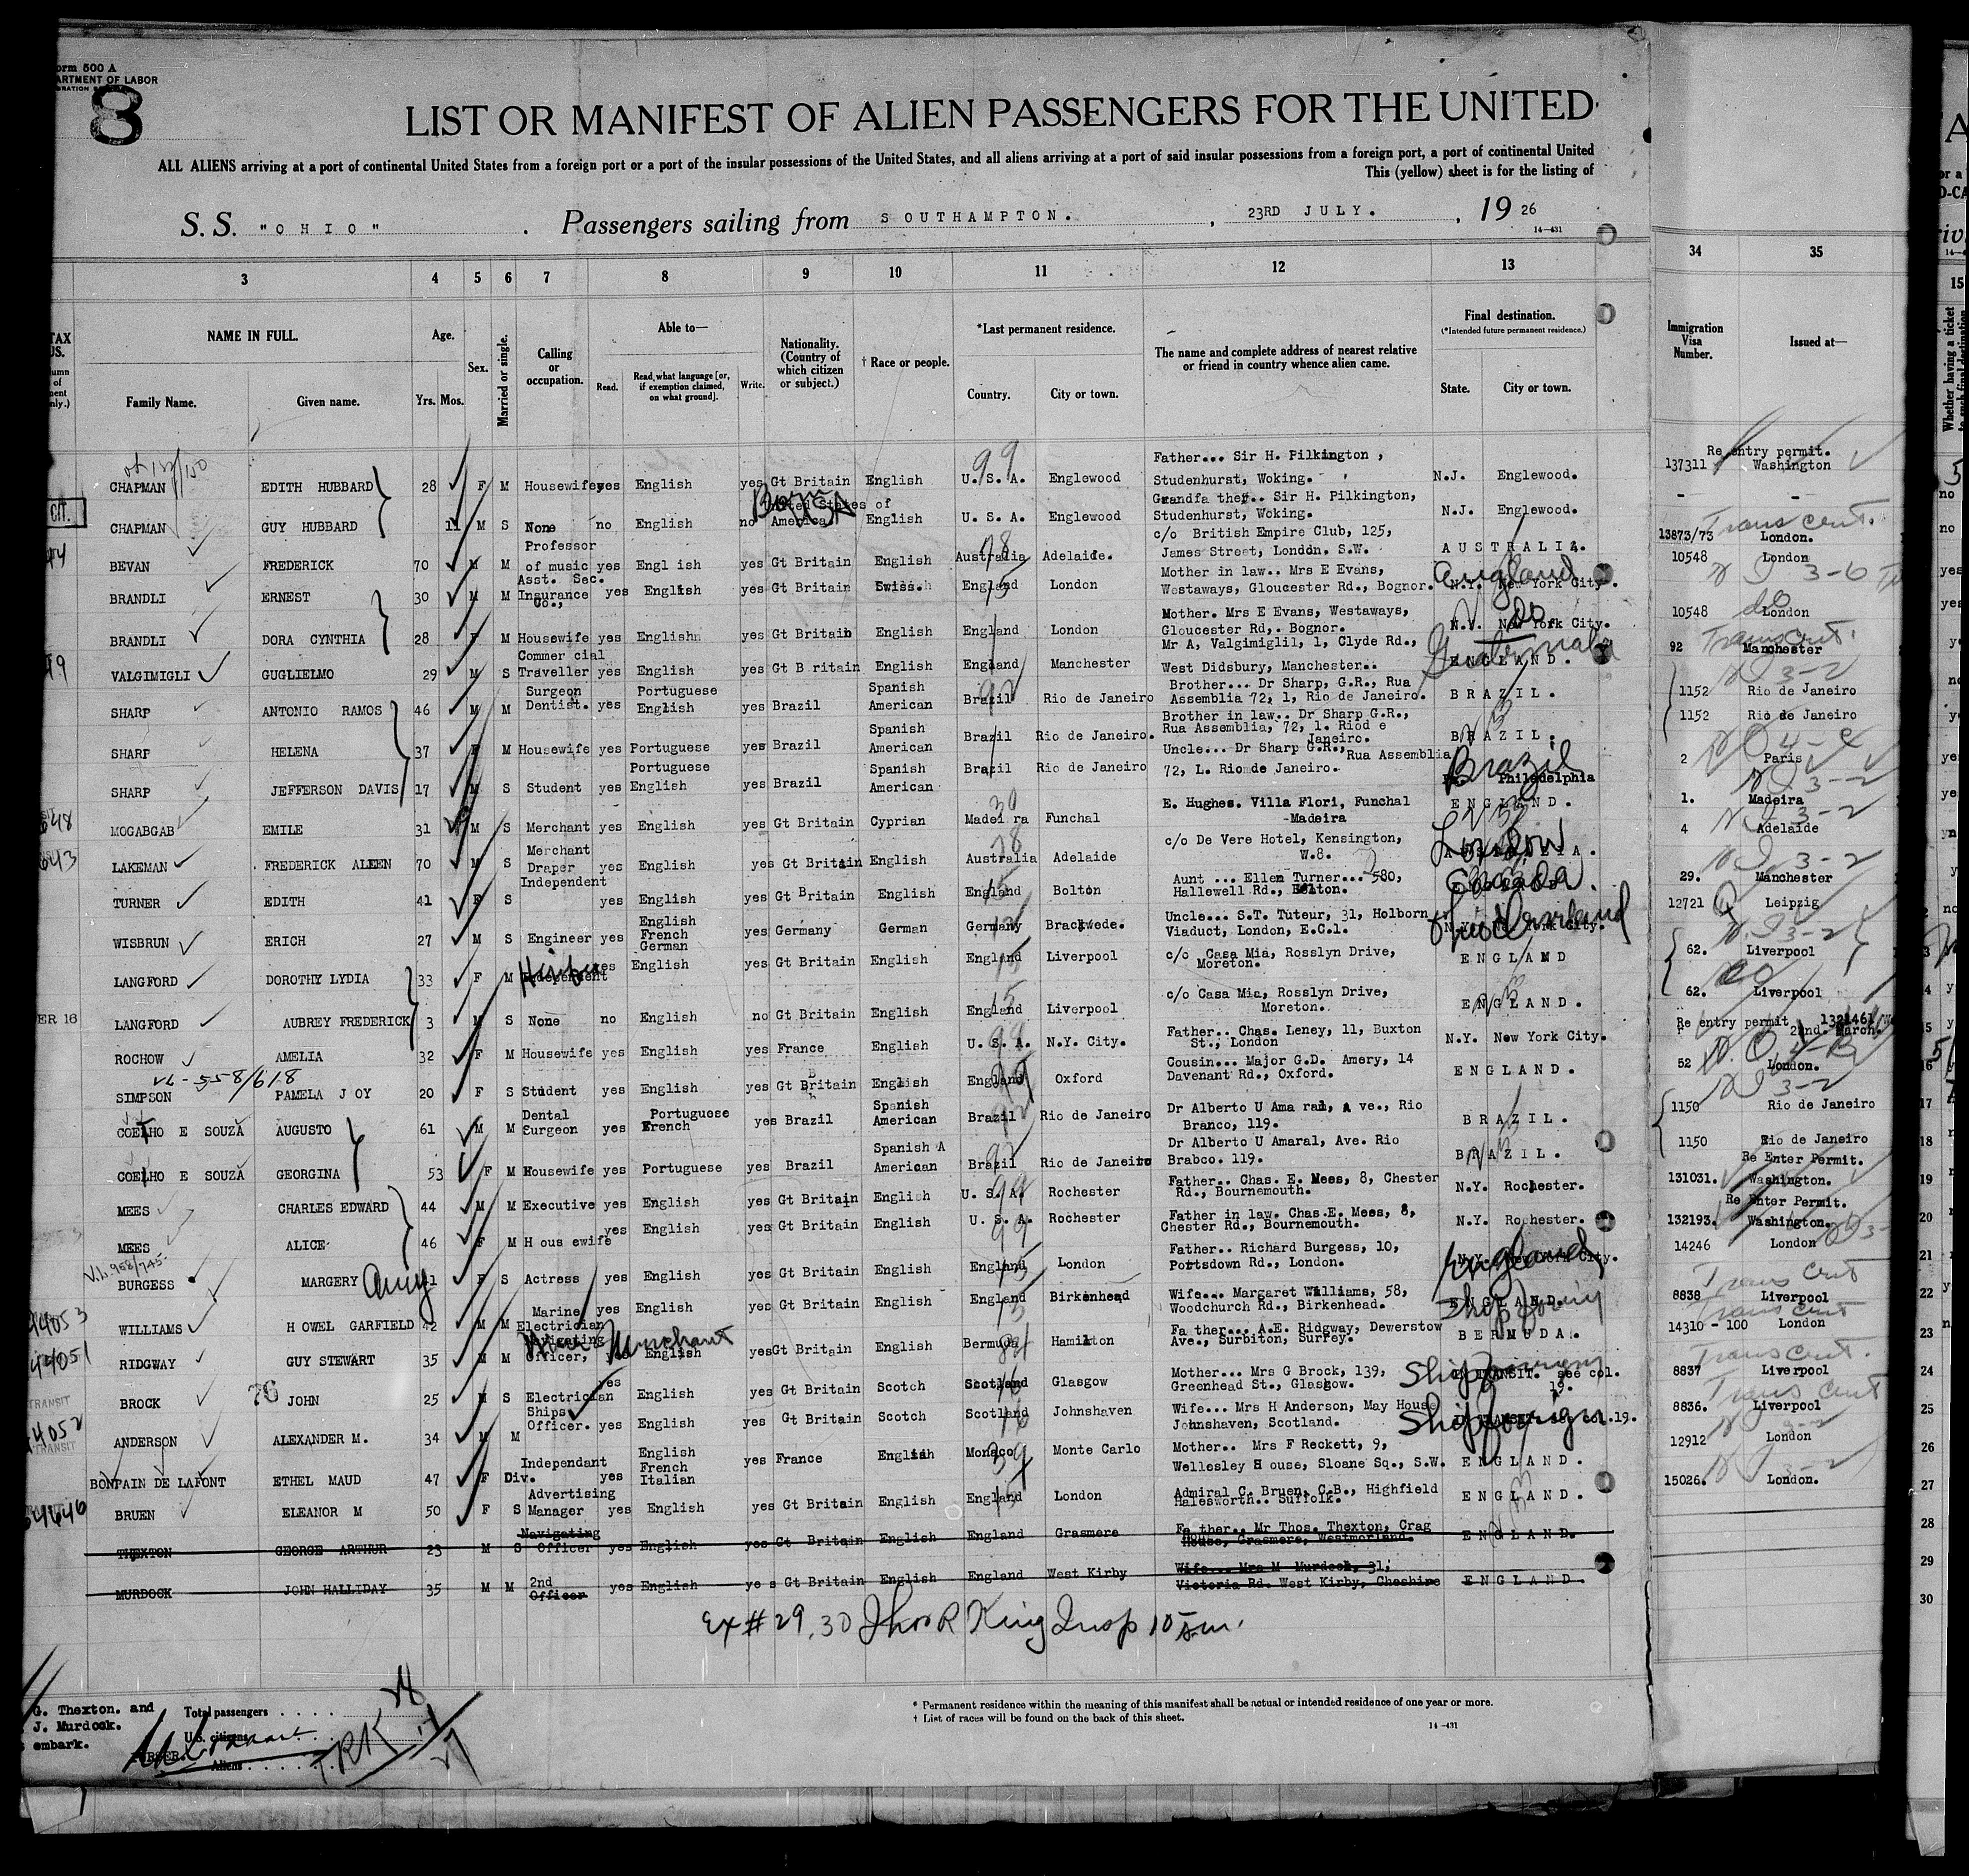 orm 500 A
ARTMENT OF LABOR
8
LIST OR MANIFEST OF ALIEN PASSENGERS FOR THE UNITED
ALL ALIENS arriving at a port of continental United States from a foreign port or a port of the insular possessions of the United States, and all aliens arriving at a port of said insular possessions from a foreign port, a port of continental United
This (yellow) sheet is for the listing of
S. S. "OHIO" . Passengers sailing from SOUTHAMPTON. , 23RD JULY. , 19 26
14-431
3 4 5 6 7 8 9 10 11 12 13 34 35
NAME IN FULL. Family Name. Given name.
Age. Yrs. Mos.
Sex.
Married or single.
Calling or occupation.
Able to— Read. Read, what language [or, if exemption claimed, on what ground]. Write.
Nationality. (Country of which citizen or subject.)
† Race or people.
*Last permanent residence. Country. City or town.
The name and complete address of nearest relative or friend in country whence alien came.
Final destination. (*Intended future permanent residence.) State. City or town.
Immigration Visa Number.
Issued at—
CHAPMAN EDITH HUBBARD 28 F M Housewife yes English yes Gt Britain English U. S. A. Englewood Father... Sir H. Pilkington, Studenhurst, Woking. N.J. Englewood. 137311 Re entry permit. Washington
CHAPMAN GUY HUBBARD M S None no English no United States of America English U. S. A. Englewood Grandfa ther.. Sir H. Pilkington, Studenhurst, Woking. N.J. Englewood. - -
BEVAN FREDERICK 70 M M Professor of music yes Engl ish yes Gt Britain English Australia Adelaide. c/o British Empire Club, 125, James Street, London. S.W. AUSTRALIA. 13873/73 Trans cert. London.
BRANDLI ERNEST 30 M M Asst. Sec. Insurance Co., yes English yes Gt Britain Swiss. England London Mother in law.. Mrs E Evans, Westaways, Gloucester Rd., Bognor. N.Y. New York City. England 10548 London
BRANDLI DORA CYNTHIA 28 F M Housewife yes English yes Gt Britain English England London Mother. Mrs E Evans, Westaways, Gloucester Rd,. Bognor. N.Y. New York City. do. 10548 London
VALGIMIGLI GUGLIELMO 29 M S Commer cial Traveller yes English yes Gt B ritain English England Manchester Mr A, Valgimiglil, 1, Clyde Rd., West Didsbury, Manchester.. ENGLAND. Guatemala 92 Trans cert. Manchester
SHARP ANTONIO RAMOS 46 M M Surgeon Dentist. yes Portuguese English yes Brazil Spanish American Brazil Rio de Janeiro Brother... Dr Sharp, G.R., Rua Assemblia 72, 1, Rio de Janeiro. BRAZIL. 1152 Rio de Janeiro
SHARP HELENA 37 F M Housewife yes Portuguese yes Brazil Spanish American Brazil Rio de Janeiro. Brother in law.. Dr Sharp G.R., Rua Assemblia, 72, 1. Riod e Janeiro. BRAZIL. 1152 Rio de Janeiro
SHARP JEFFERSON DAVIS 17 M S Student yes Portuguese English yes Brazil Spanish American Brazil Rio de Janeiro Uncle... Dr Sharp G.R., Rua Assemblia 72, L. Rio de Janeiro. Philadelphia Brazil 2 Paris
MOGABGAB EMILE 31 M S Merchant yes English yes Gt Britain Cyprian Madei ra Funchal E. Hughes. Villa Flori, Funchal -Madeira ENGLAND. 1. Madeira
LAKEMAN FREDERICK ALEEN 70 M S Merchant Draper yes English yes Gt Britain English Australia Adelaide c/o De Vere Hotel, Kensington, W.8. AUSTRALIA. London 4 Adelaide
TURNER EDITH 41 F S Independent yes English yes Gt Britain English England Bolton Aunt ... Ellen Turner... 580, Hallewell Rd., Bolton. Canada. 29. Manchester
WISBRUN ERICH 27 M S Engineer yes English French German yes Germany German Germany Brackwede. Uncle... S.T. Tuteur, 31, Holborn Viaduct, London, E.C.1. N.Y. New York City. 12721 Leipzig
LANGFORD DOROTHY LYDIA 33 F M Independent yes English yes Gt Britain English England Liverpool c/o Casa Mia, Rosslyn Drive, Moreton. ENGLAND 62. Liverpool
LANGFORD AUBREY FREDERICK 3 M S None no English no Gt Britain English England Liverpool c/o Casa Mia, Rosslyn Drive, Moreton. ENGLAND. 62. Liverpool
ROCHOW AMELIA 32 F M Housewife yes English yes France English U. S. A. N.Y. City. Father.. Chas. Leney, 11, Buxton St., London N.Y. New York City. Re entry permit 1321461 22nd. March.
SIMPSON PAMELA J OY 20 F S Student yes English yes Gt Britain English England Oxford Cousin... Major G.D. Amery, 14 Davenant Rd., Oxford. ENGLAND. 52 London.
COELHO E SOUZA AUGUSTO 61 M M Dental Surgeon yes Portuguese French yes Brazil Spanish American Brazil Rio de Janeiro Dr Alberto U Ama ral, A ve., Rio Branco, 119. BRAZIL. 1150 Rio de Janeiro
COELHO E SOUZA GEORGINA 53 F M Housewife yes Portuguese yes Brazil Spanish A American Brazil Rio de Janeiro Dr Alberto U Amaral, Ave. Rio Brabco. 119. BRAZIL. 1150 Rio de Janeiro
MEES CHARLES EDWARD 44 M M Executive yes English yes Gt Britain English U. S. A. Rochester Father.. Chas. E. Mees, 8, Chester Rd., Bournemouth. N.Y. Rochester. 131031. Re Enter Permit. Washington.
MEES ALICE 46 F M H ous ewife yes English yes Gt Britain English U. S. A. Rochester Father in law. Chas.E. Mees, 8, Chester Rd., Bournemouth. N.Y. Rochester. 132193. Re Enter Permit. Washington.
BURGESS MARGERY Amy F S Actress yes English yes Gt Britain English England London Father.. Richard Burgess, 10, Portsdown Rd., London. England 14246 London
WILLIAMS H OWEL GARFIELD 42 M M Marine Electrician yes English yes Gt Britain English England Birkenhead Wife... Margaret Williams, 58, Woodchurch Rd., Birkenhead. ENGLAND. 8838 Trans Cert Liverpool
RIDGWAY GUY STEWART 35 M M Navigating Officer, Merchant yes English yes Gt Britain English Bermuda Hamilton Fa ther... A.E. Ridgway, Dewerstow Ave., Surbiton, Surrey. BERMUDA. 14310 - 100 Trans cert London
BROCK 76 JOHN 25 M S Electrician yes English yes Gt Britain Scotch Scotland Glasgow Mother... Mrs G Brock, 139, Greenhead St., Glasgow. TRANSIT. see col. 19. 8837 Trans Cert. Liverpool
ANDERSON ALEXANDER M. 34 M M Ships Officer. yes English yes Gt Britain Scotch Scotland Johnshaven Wife... Mrs H Anderson, May House Johnshaven, Scotland. col.19. Ship foreign 8836. Trans Cert Liverpool
BONPAIN DE LAFONT ETHEL MAUD 47 F Div. Independant yes English French Italian yes France English Monaco Monte Carlo Mother.. Mrs F Reckett, 9, Wellesley H ouse, Sloane Sq., S.W. ENGLAND. 12912 London
BRUEN ELEANOR M 50 F S Advertising Manager yes English yes Gt Britain English England London Admiral C. Bruen, C.B., Highfield Halesworth.. Suffolk. ENGLAND. 15026. London.
THEXTON GEORGE ARTHUR 23 M S Navigating Officer yes English yes Gt Britain English England Grasmere Fa ther.. Mr Thos. Thexton, Crag House, Grasmere, Westmorland. ENGLAND.
MURDOCK JOHN HALLIDAY 35 M M 2nd Officer yes English ye s Gt Britain English England West Kirby Wife... Mrs M Murdock, 31, Victoria Rd. West Kirby, Cheshire ENGLAND.
Ex # 29, 30 King Insp
G. Thexton. and
J. Murdock.
embark.
Total passengers
U.S. citizens
Aliens
PURSER.
* Permanent residence within the meaning of this manifest shall be actual or intended residence of one year or more.
† List of races will be found on the back of this sheet.
14-431